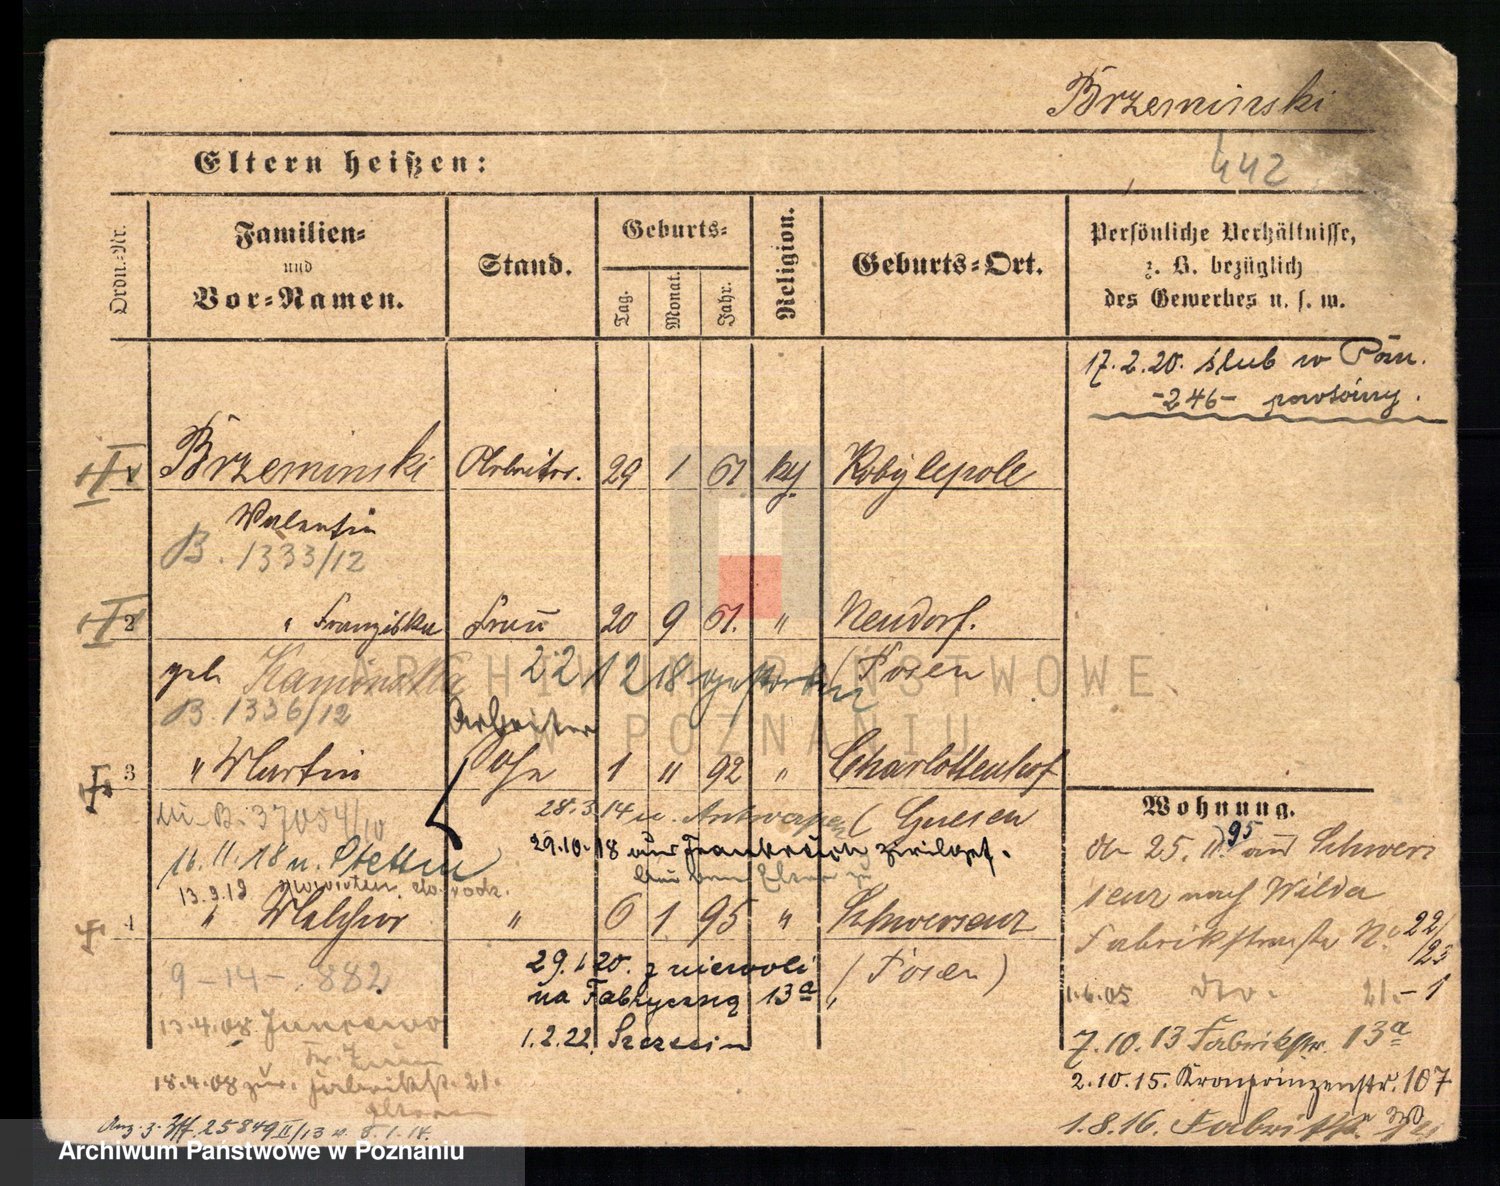 Brzeminski
442
Eltern heißen:
Ordn.-Nr.
Familien-
und
Vor-Namen.
Stand.
Geburts-
Tag.
Monat.
Jahr.
Religion.
Geburts-Ort.
Persönliche Verhältnisse,
z. B. bezüglich
des Gewerbes u. s. w.
17.2.20. slub w Pozn.
-246-
1 Brzeminski Arbeiter. 29 1 61 kth Kobylepole
Valentin
B. 1333/12
2 " Franziska Frau 20 9 61. " Neudorf.
geb 22 12 18 gestorben (Posen
B. 1336/12
Arbeiter
3 " Martin ohn 1 11 92 " Charlottenhof
28.3.14 u. Antwerpen (Gnesen
B. 37054/10
29.10.18 aus Frankreich
16.11.18 n. Stettin
13.9.19
4 " Melchior " 6 1. 95 " Schwersenz
29.1.20. z niewoli (Posen)
9-14-882
na Fabryczną 13a
13.4.08
1.2.22 Szczecin
18.4.08 zur. Fabrikstr. 21.
Eltern
Wohnung.
25. 11. 95 aus Schwer
senz nach Wilda
Fabrikstraße No 22/23
1.6.05 dto. 21.-1
7.10.13 Fabrikstr. 13a
2.10.15. Kronprinzenstr. 107
1.8.16. Fabrikstr.
25849 II/13
ARCHIWUM PAŃSTWOWE
W POZNANIU
Archiwum Państwowe w Poznaniu